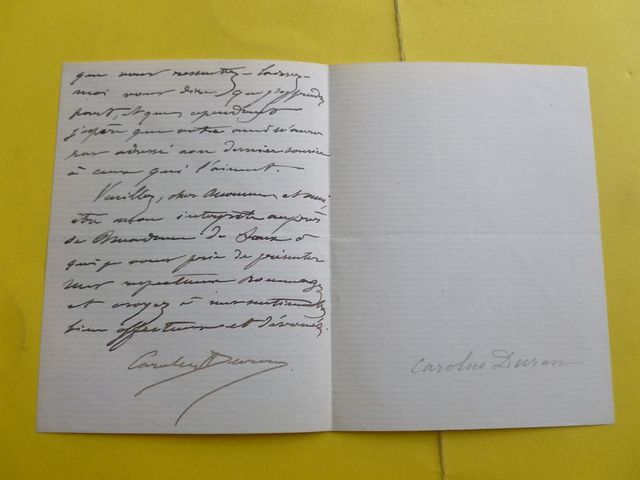 que vous ressentez – laissez-
moi vous dire que j'apprends
tout, et que cependant
j'espère que votre ami n'aura
pas adressé son dernier sourire
à ceux qui l'aiment.
Veuillez, cher Monsieur et ami
être mon interprète auprès
de Madame de à
qui je vous prie de présenter
mes respectueux hommages
et croyez à mes sentiments
bien affectueux et dévoués.
Carolus Duran
Carolus Duran